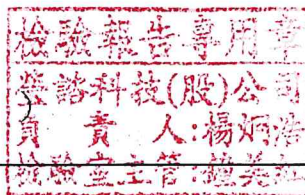 檢驗報告專用章
諮科技(股)公司
負責人:楊炯浩
檢驗室主管: